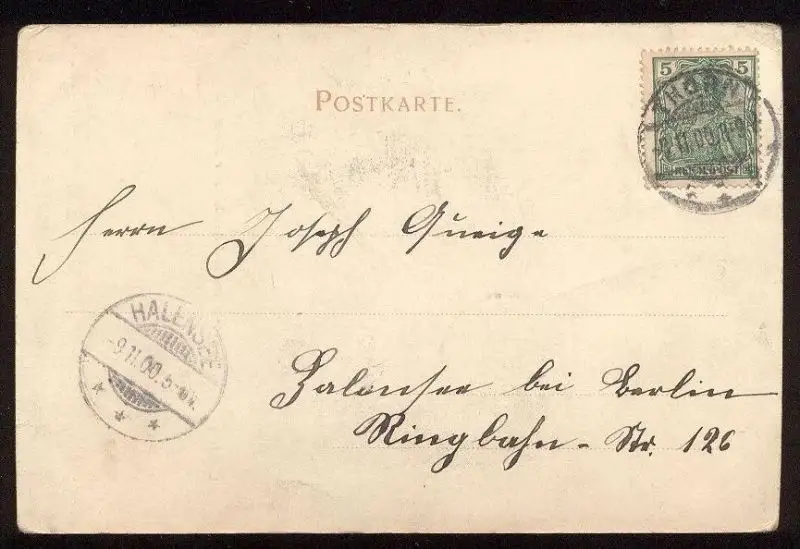 POSTKARTE.
5 5
THORN
11.00
REICHSPOST
Herrn Joseph Queige
HALENSEE
-9.11.00.5-6N.
Halensee bei Berlin
Ringbahn-Str. 126